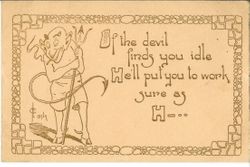 If the devil
finds you idle
He'll put you to work
sure as
H---